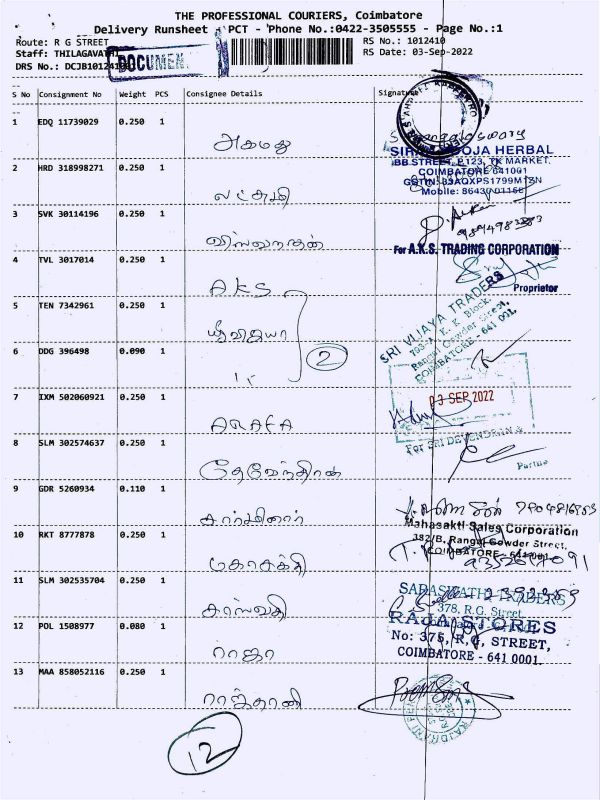 THE PROFESSIONAL COURIERS, Coimbatore
Delivery Runsheet - PCT - Phone No.:0422-3505555 - Page No.:1
Route: R G STREET RS No.: 1012410
Staff: THILAGAVATHI RS Date: 03-Sep-2022
DRS No.: DCJB1012410
DOCUMENT
S No Consignment No Weight PCS Consignee Details Signature
1 EDQ 11739029 0.250 1 அகமது
SIRI POOJA HERBAL
BB STREET, P123, TK MARKET.
COIMBATORE-641001
2 HRD 318998271 0.250 1 லட்சுமி
GSTIN-33AQXPS1799M1ZN
3 SVK 30114196 0.250 1 விஸ்வநாதன்
For A.K.S. TRADING CORPORATION
4 TVL 3017014 0.250 1 AKS
Proprietor
5 TEN 7342961 0.250 1 ஸ்ரீவிஜயா
SRI VIJAYA TRADERS
Rangai Gowder Street,
COIMBATORE - 641 001.
6 DDG 396498 0.090 1 "
2
7 IXM 502060921 0.250 1 ARAFA
03 SEP 2022
8 SLM 302574637 0.250 1 தேவேந்திரன்
For SRI DEVENDRAN &
Partner
9 GDR 5260934 0.110 1
Mahasakti Sales Corporation
10 RKT 8777878 0.250 1 மகாசக்தி
382/B, Rangai Gowder Street,
COIMBATORE - 641001
11 SLM 302535704 0.250 1 சரஸ்வதி
SARASWATHI TRADERS
378, R.G. Street
12 POL 1508977 0.080 1 ராஜா
RAJA STORES
No: 375, R.G, STREET,
COIMBATORE - 641 0001.
13 MAA 858052116 0.250 1 ராஜ்தானி
12